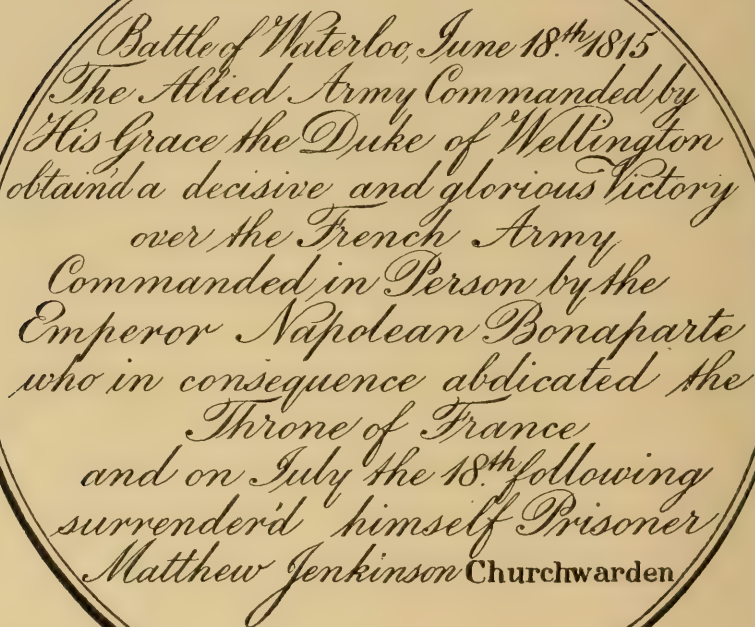 Battle of Waterloo, June 18.th 1815
The Allied Army Commanded by
His Grace the Duke of Wellington
obtain'd a decisive and glorious Victory
over the French Army
Commanded in Person by the
Emperor Napolean Bonaparte
who in consequence abdicated the
Throne of France
and on July the 18.th following
surrender'd himself Prisoner
Matthew Jenkinson Churchwarden